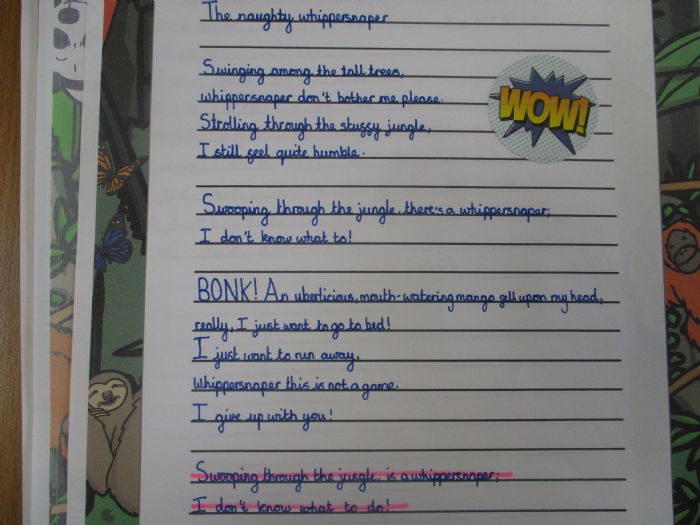 The naughty whippersnaper
Swinging among the tall trees,
whippersnaper don't bother me please.
WOW!
Strolling through the stuffy jungle,
I still feel quite humble.
Swooping through the jungle, there's a whippersnaper;
I don't know what to!
BONK! An uberlicious, mouth-watering mango fell upon my head,
really, I just want to go to bed!
I just want to run away,
Whippersnaper this is not a game.
I give up with you!
Swooping through the jungle, is a whippersnaper;
I don't know what to do!